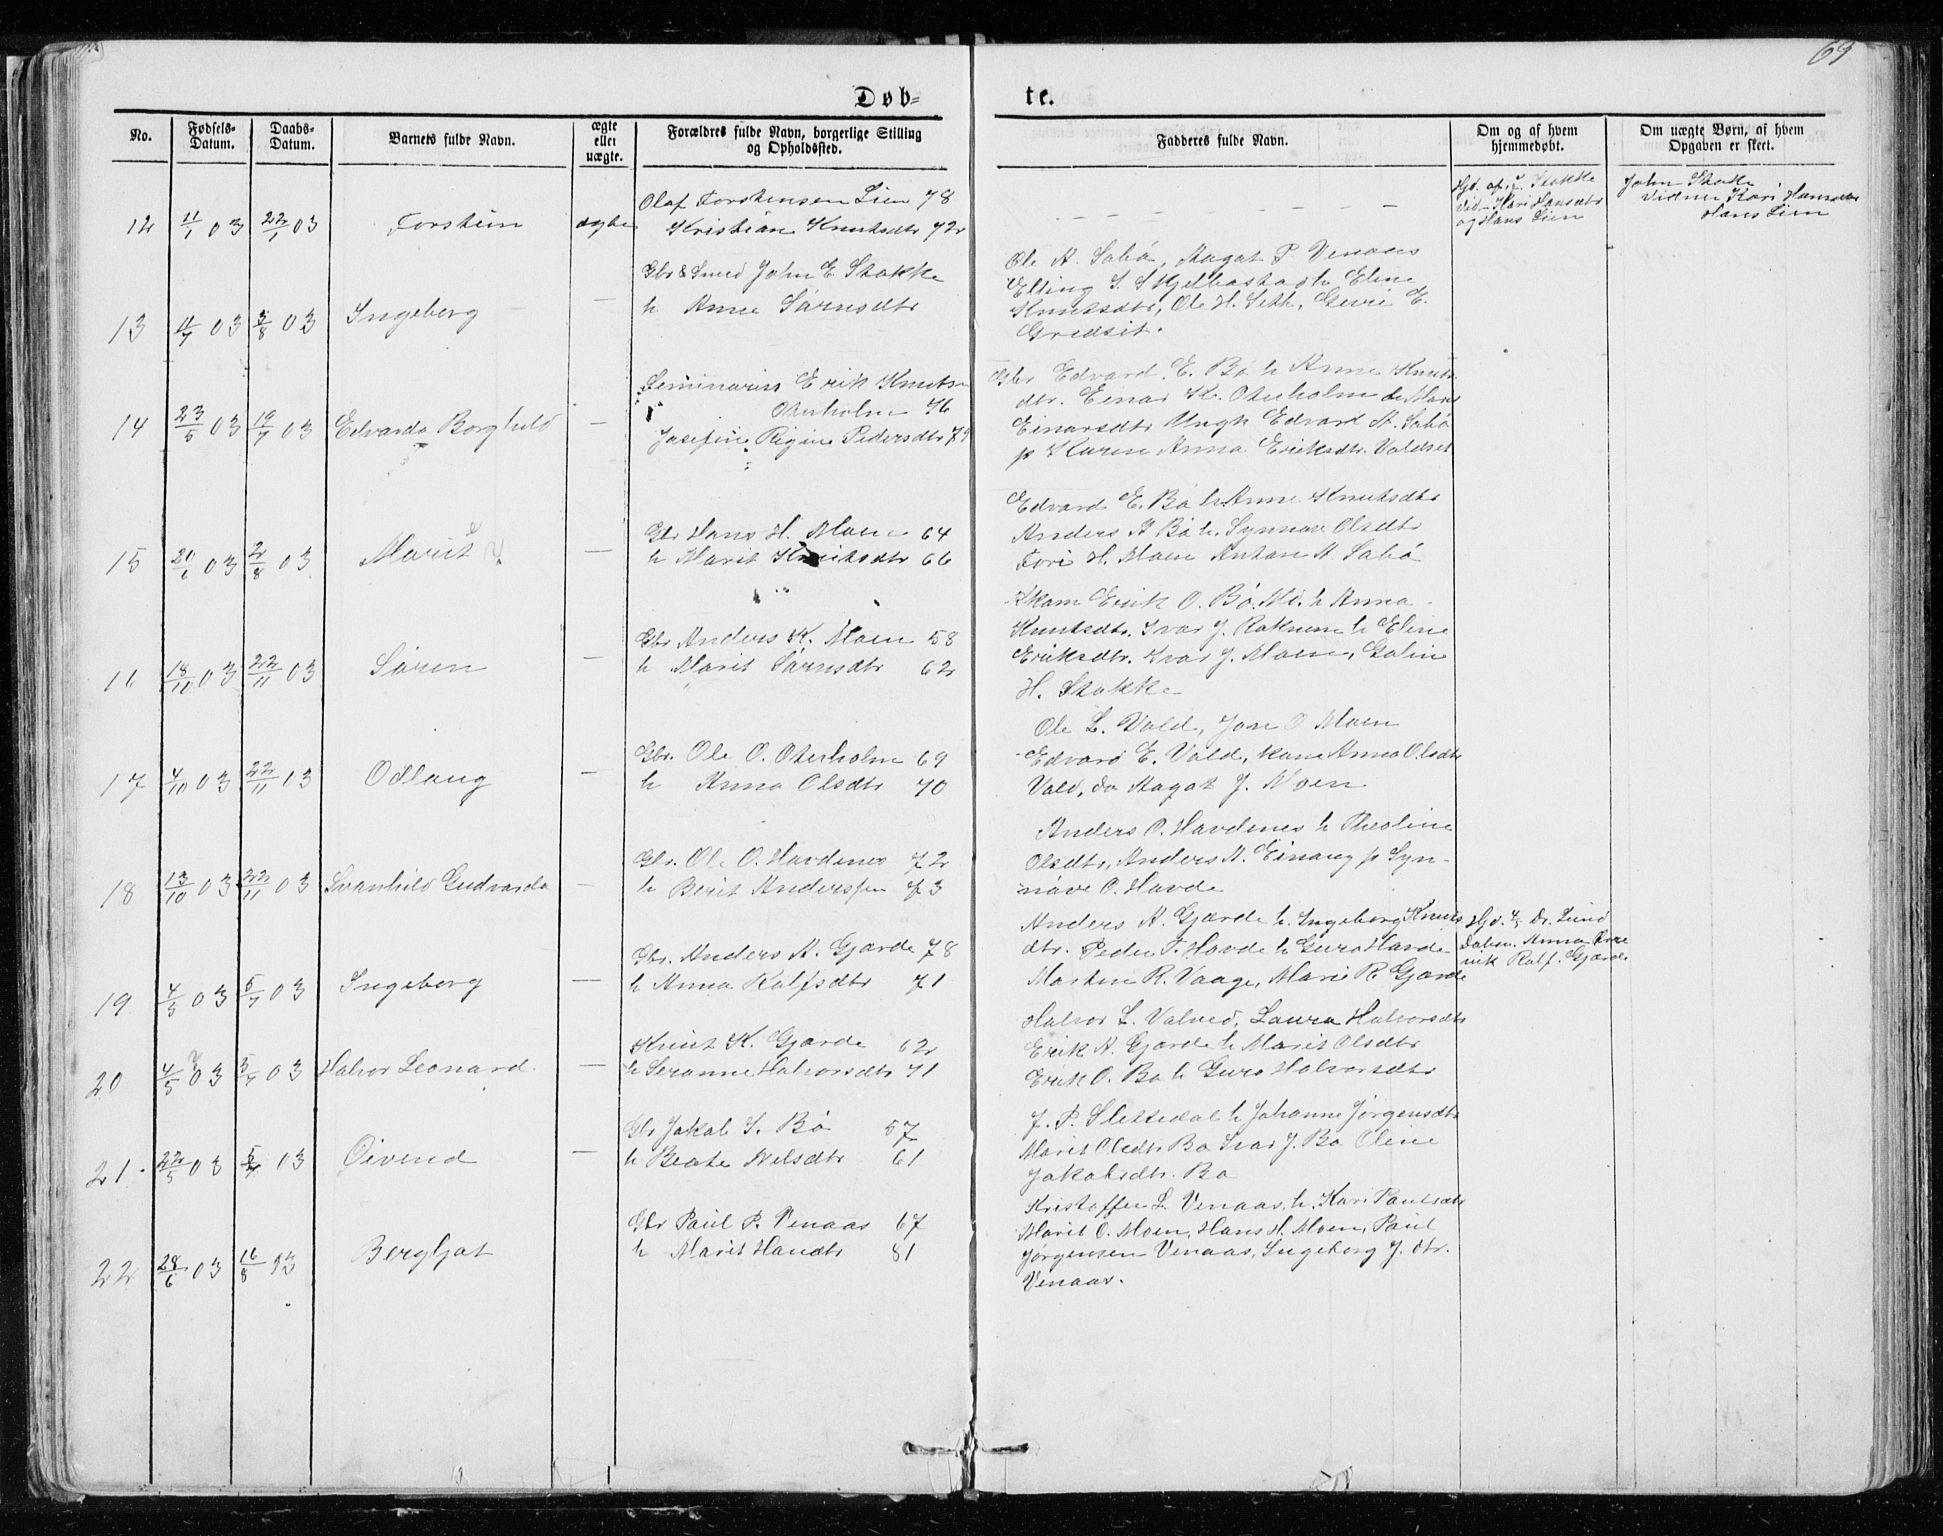 69
Døb-
te.
No.
Fødsels-
Datum.
Daabs-
Datum.
Barnets fulde Navn.
ægte
eller
uægte.
Forældres fulde Navn, borgerlige Stilling
og Opholdssted.
Fadderes fulde Navn.
Om og af hvem
hjemmedøbt.
Om uægte Børn, af hvem
Opgaven er skeet.
12 11/1 03 22/1 03 Torstein ægte
Olaf Torstensen Lien 78
Kristiane Knutsdtr 72
Hjd. af J. Stokke
Vid. Kari Hansdtr
og Hans Lien
John Stokke
Vidner Kari Hansdtr
Hans Lien
13 4/7 03 3/8 03 Ingeborg —
Gbr & Smed John E. Stokke
h Anne Sørnsdtr
Ole A. Sabø, Aagot P. Venaas
Elling S. Skjelbostad h Eline
Knutsdtr, Ole H. Seth, Guri E.
Gredset.
14 23/5 03 19/7 03 Edvarda Borghild —
Seminarist Erik Knuts
Oterholm 76
Josefine Regine Pedersdtr 79
Gbr Edvard E. Bø h Anne Knuts
dtr. Einar K. Oterholm
Einarsdtr Ungk Edvard A. Sabø
p Karen Anna Eriksdtr. Valdset
15 20/6 03 2/8 03 Marit —
Gbr Hans H. Moen 64
h Marit Knutsdtr 66
Edvard E. Bø h Anne Knutsdtr
Anders A Bø h. Synnøve Olsdtr
Tori H. Moen Anton A. Sabø
16 18/10 03 22/11 03 Søren —
Gbr Anders K. Moen 58
h Marit Sørnsdtr 62
Erik O. Bø. h Anna
Knutsdtr. Ivar J. Raknem h Eline
Eriksdtr. Ivar J. Moen, Galin
H. Stokke
17 4/10 03 22/11 03 Odlaug —
Gbr. Ole O. Oterholm 69
h Anna Olsdtr 70
Ole L. Vold, Jon O Moen
Edvard E. Vold, kone Anna Olsdtr
Vold, do Aagot J. Moen
18 13/10 03 22/11 03 Svanhild Gudvarda —
Gbr. Ole O. Havdenes 72
h Berit Andersen 73
Anders O. Havdenes h Theoline
Olsdtr, Anders A. Einang p Syn-
nøve O. Havde
19 4/5 03 5/7 03 Ingeborg —
Gbr. Anders A. Gjærde 78
h Anna Rolfsdtr 71
Anders A. Gjærde h. Ingeborg Knuts
dtr. Peder T. Havde h Guro Havde
Martin R. Vaage, Marie R. Gjærde
Hjd. Dr. Lund
Anna
Rolf. Gjærde
20 4/5 03 5/7 03 Halvor Leonard. —
Knut K. Gjærde 62
h Seranne Halvorsdtr 71
Halvor L. Valved, Laura Halvorsdtr
Erik A. Gjærde h Marit Olsdtr
Erik O. Bø h Guro Halvorsdtr
21. 22/5 03 5/7 03 Øivind —
Gbr Jakob S. Bø 57
h Beate Nilsdtr 61
J. P. Slettedal h Johanne Jørgensdtr
Marit Olsdtr Bø Ivar J. Bø Oline
Jakobsdtr. Bø
22 28/6 03 16/8 03 Bergljot
Gbr Paul P. Venaas 67
h Marit Hansdtr 81
Kristoffer L. Venaas, h. Kari Paulsdtr
Marit O. Moen, Hans H. Moen, Paul
Jørgensen Venaas, Ingeborg J. dtr.
Venaas.